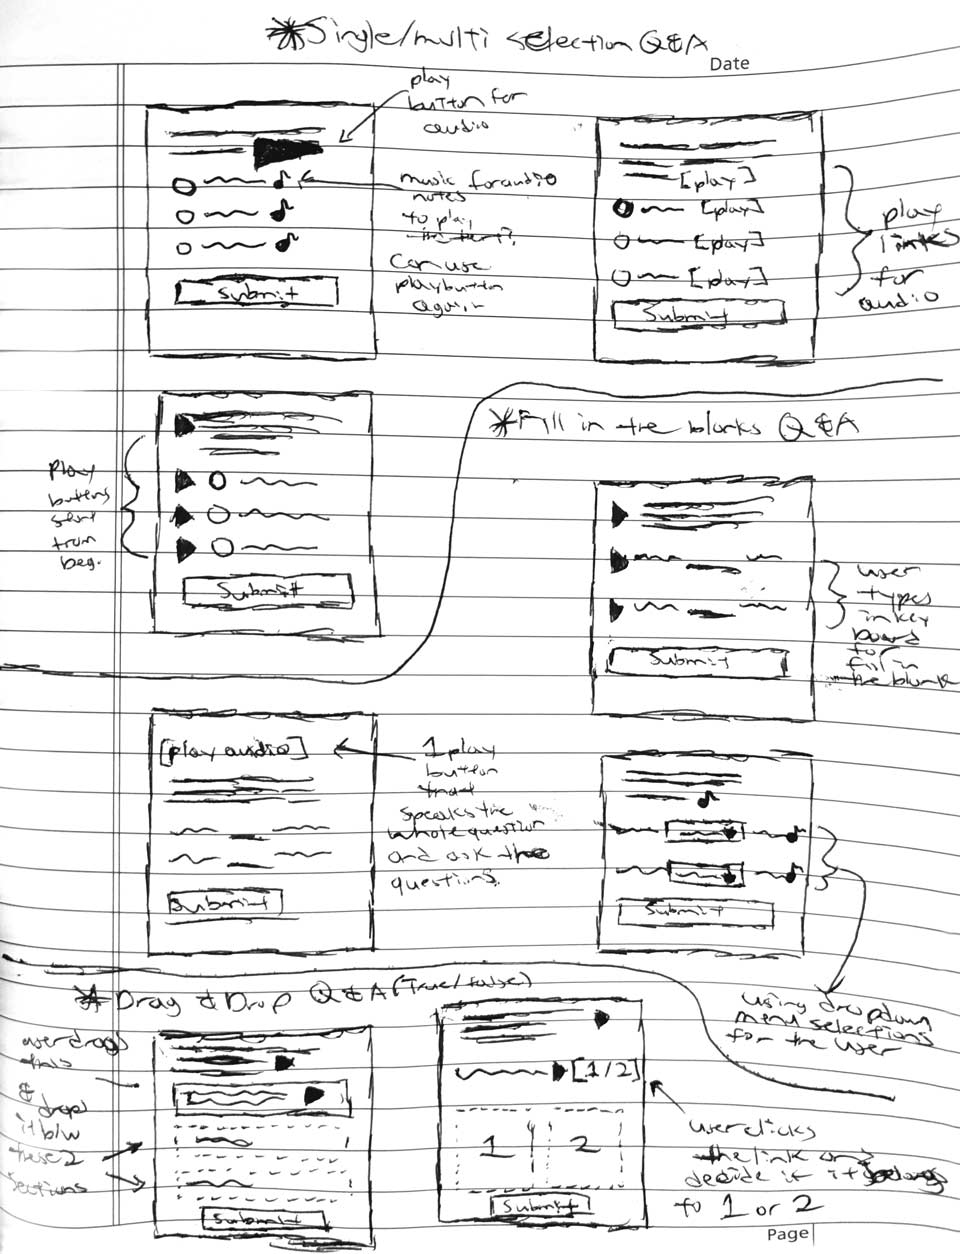 *Single/multi selection Q&A
Date
play
button for
audio
music for audio
notes
to play
this item?
Can use
play button
again
Submit
[play]
[play]
[play]
[play]
Submit
play
links
for
audio
play
buttons
start
from
beg.
Submit
*Fill in the blanks Q&A
Submit
user
types
in key
board
for
fill in
the blank
[play audio]
Submit
1 play
button
that
speaks the
whole question
and ask the
questions.
Submit
using dropdown
menu selections
for the user
*Drag & Drop Q&A (True/false)
user drags
this
&
drops
it b/w
these 2
sections
Submit
[1/2]
1 2
Submit
user clicks
the link and
decide if it belongs
to 1 or 2
Page